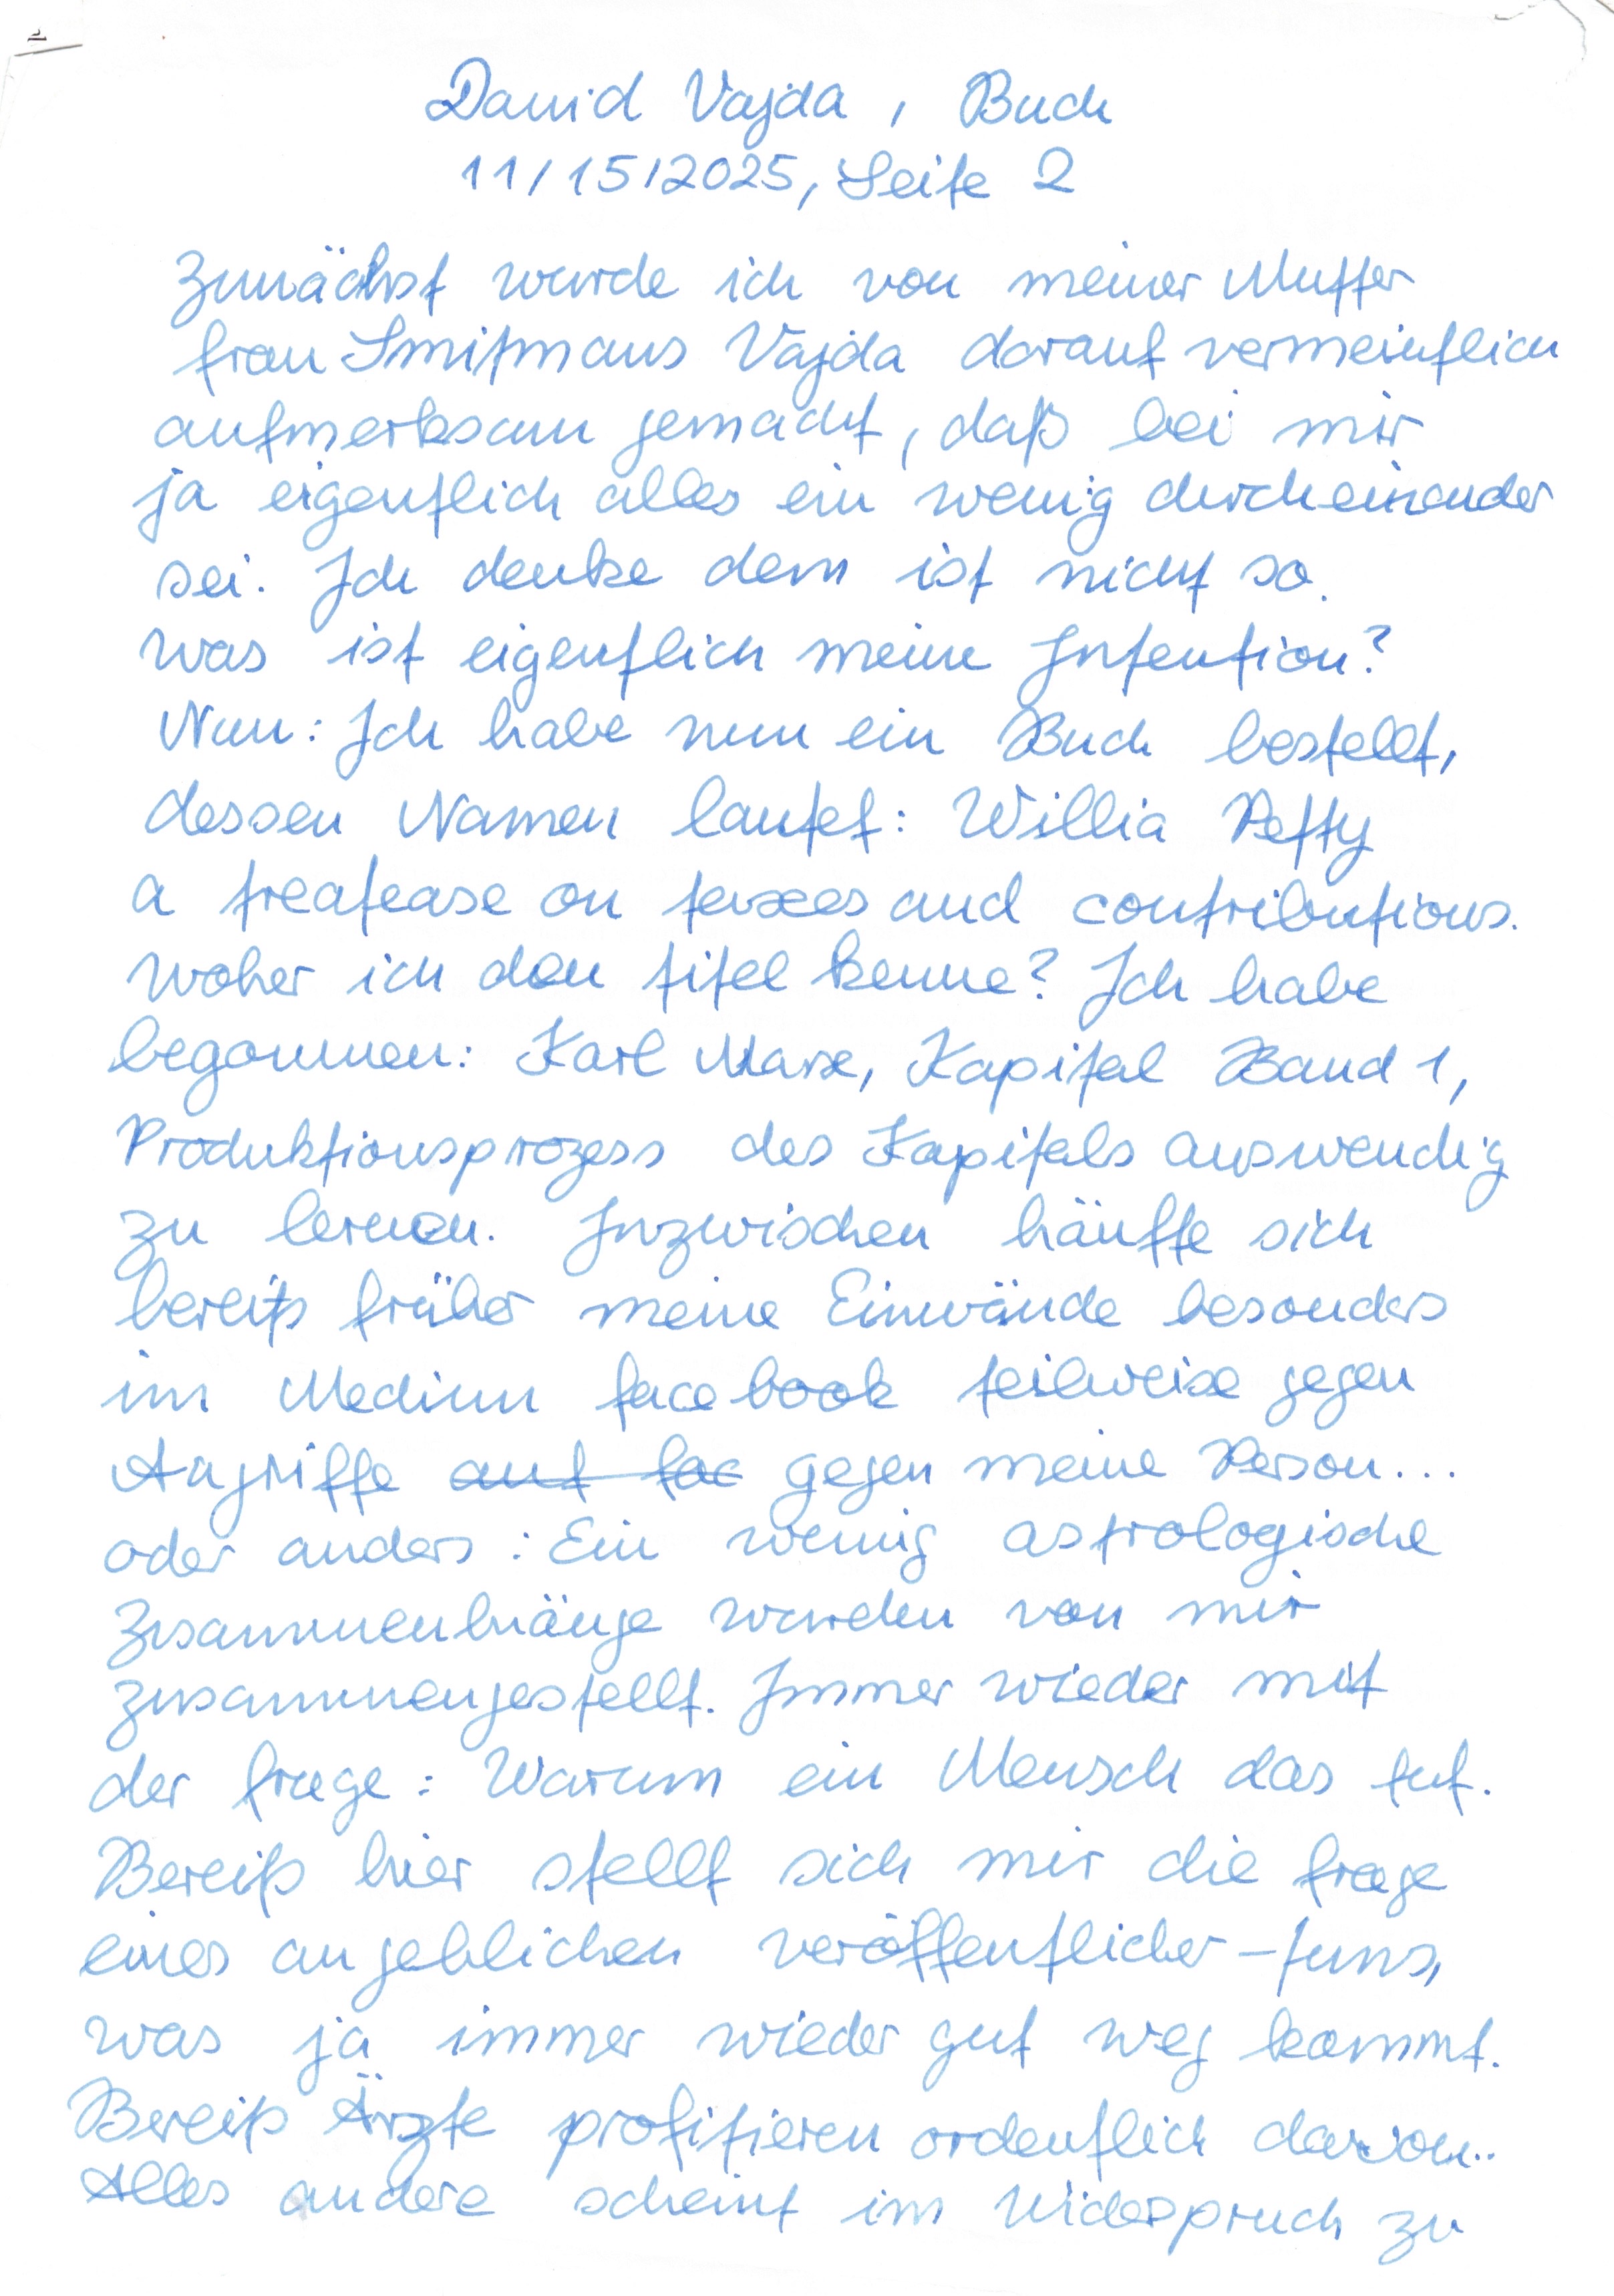 David Vajda, Buch
11/15/2025, Seite 2
Zunächst wurde ich von meiner Mutter
frau Smitmans Vajda darauf vermeintlich
aufmerksam gemacht, daß bei mir
ja eigentlich alles ein wenig durcheinander
sei. Ich denke dem ist nicht so.
Was ist eigentlich meine Intention?
Nun: Ich habe nun ein Buch bestellt,
dessen Namen lautet: Willia Petty
a treatease on taxes and contributions.
Woher ich den titel kenne? Ich habe
begonnen: Karl Marx, Kapital Band 1,
Produktionsprozess des Kapitals auswendig
zu lernen. Inzwischen häufte sich
bereits früher meine Einwände besonders
im Medium facebook teilweise gegen
Angriffe auf fac gegen meine Person...
oder anders: Ein wenig astrologische
Zusammenhänge wurden von mir
zusammengestellt. Immer wieder mit
der frage: Warum ein Mensch das tut.
Bereits hier stellt sich mir die frage
eines angeblichen veröffentlicher-tums,
was ja immer wieder gut weg kommt.
Bereits Ärzte profitieren ordentlich davon..
Alles andere scheint im Widerspruch zu